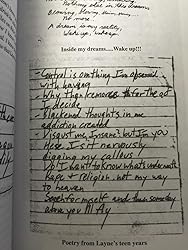 Nothing else in this dream,
No more.
A dream is my reality,
Wake up, wake up.
Inside my dreams.....Wake up!!!
- Control is onthing I'm obsessed
with having
- Why then remorse for the act
I decide
- Blackend thoughts in me
addiction created
- Disgust me, Insane? but I'm you
Here I sit nervously
digging my callous
- Do I want to know whats underneath
Rape & religion not my way
to heaven
- Search for myself and then someday
above you I'll fly
Poetry from Layne's teen years